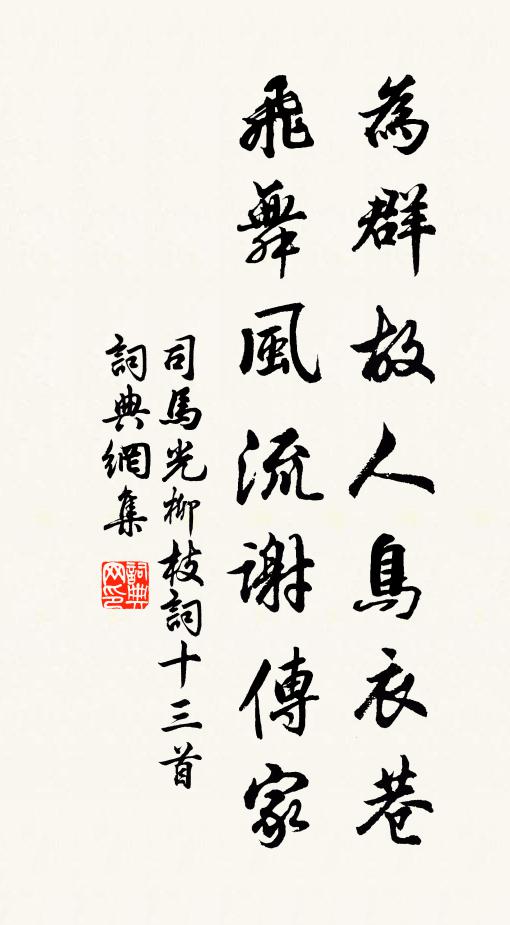 為群故人烏衣巷
飛舞風流謝傳家
司馬光柳枝詞十三首
詞典網集
詞典网印